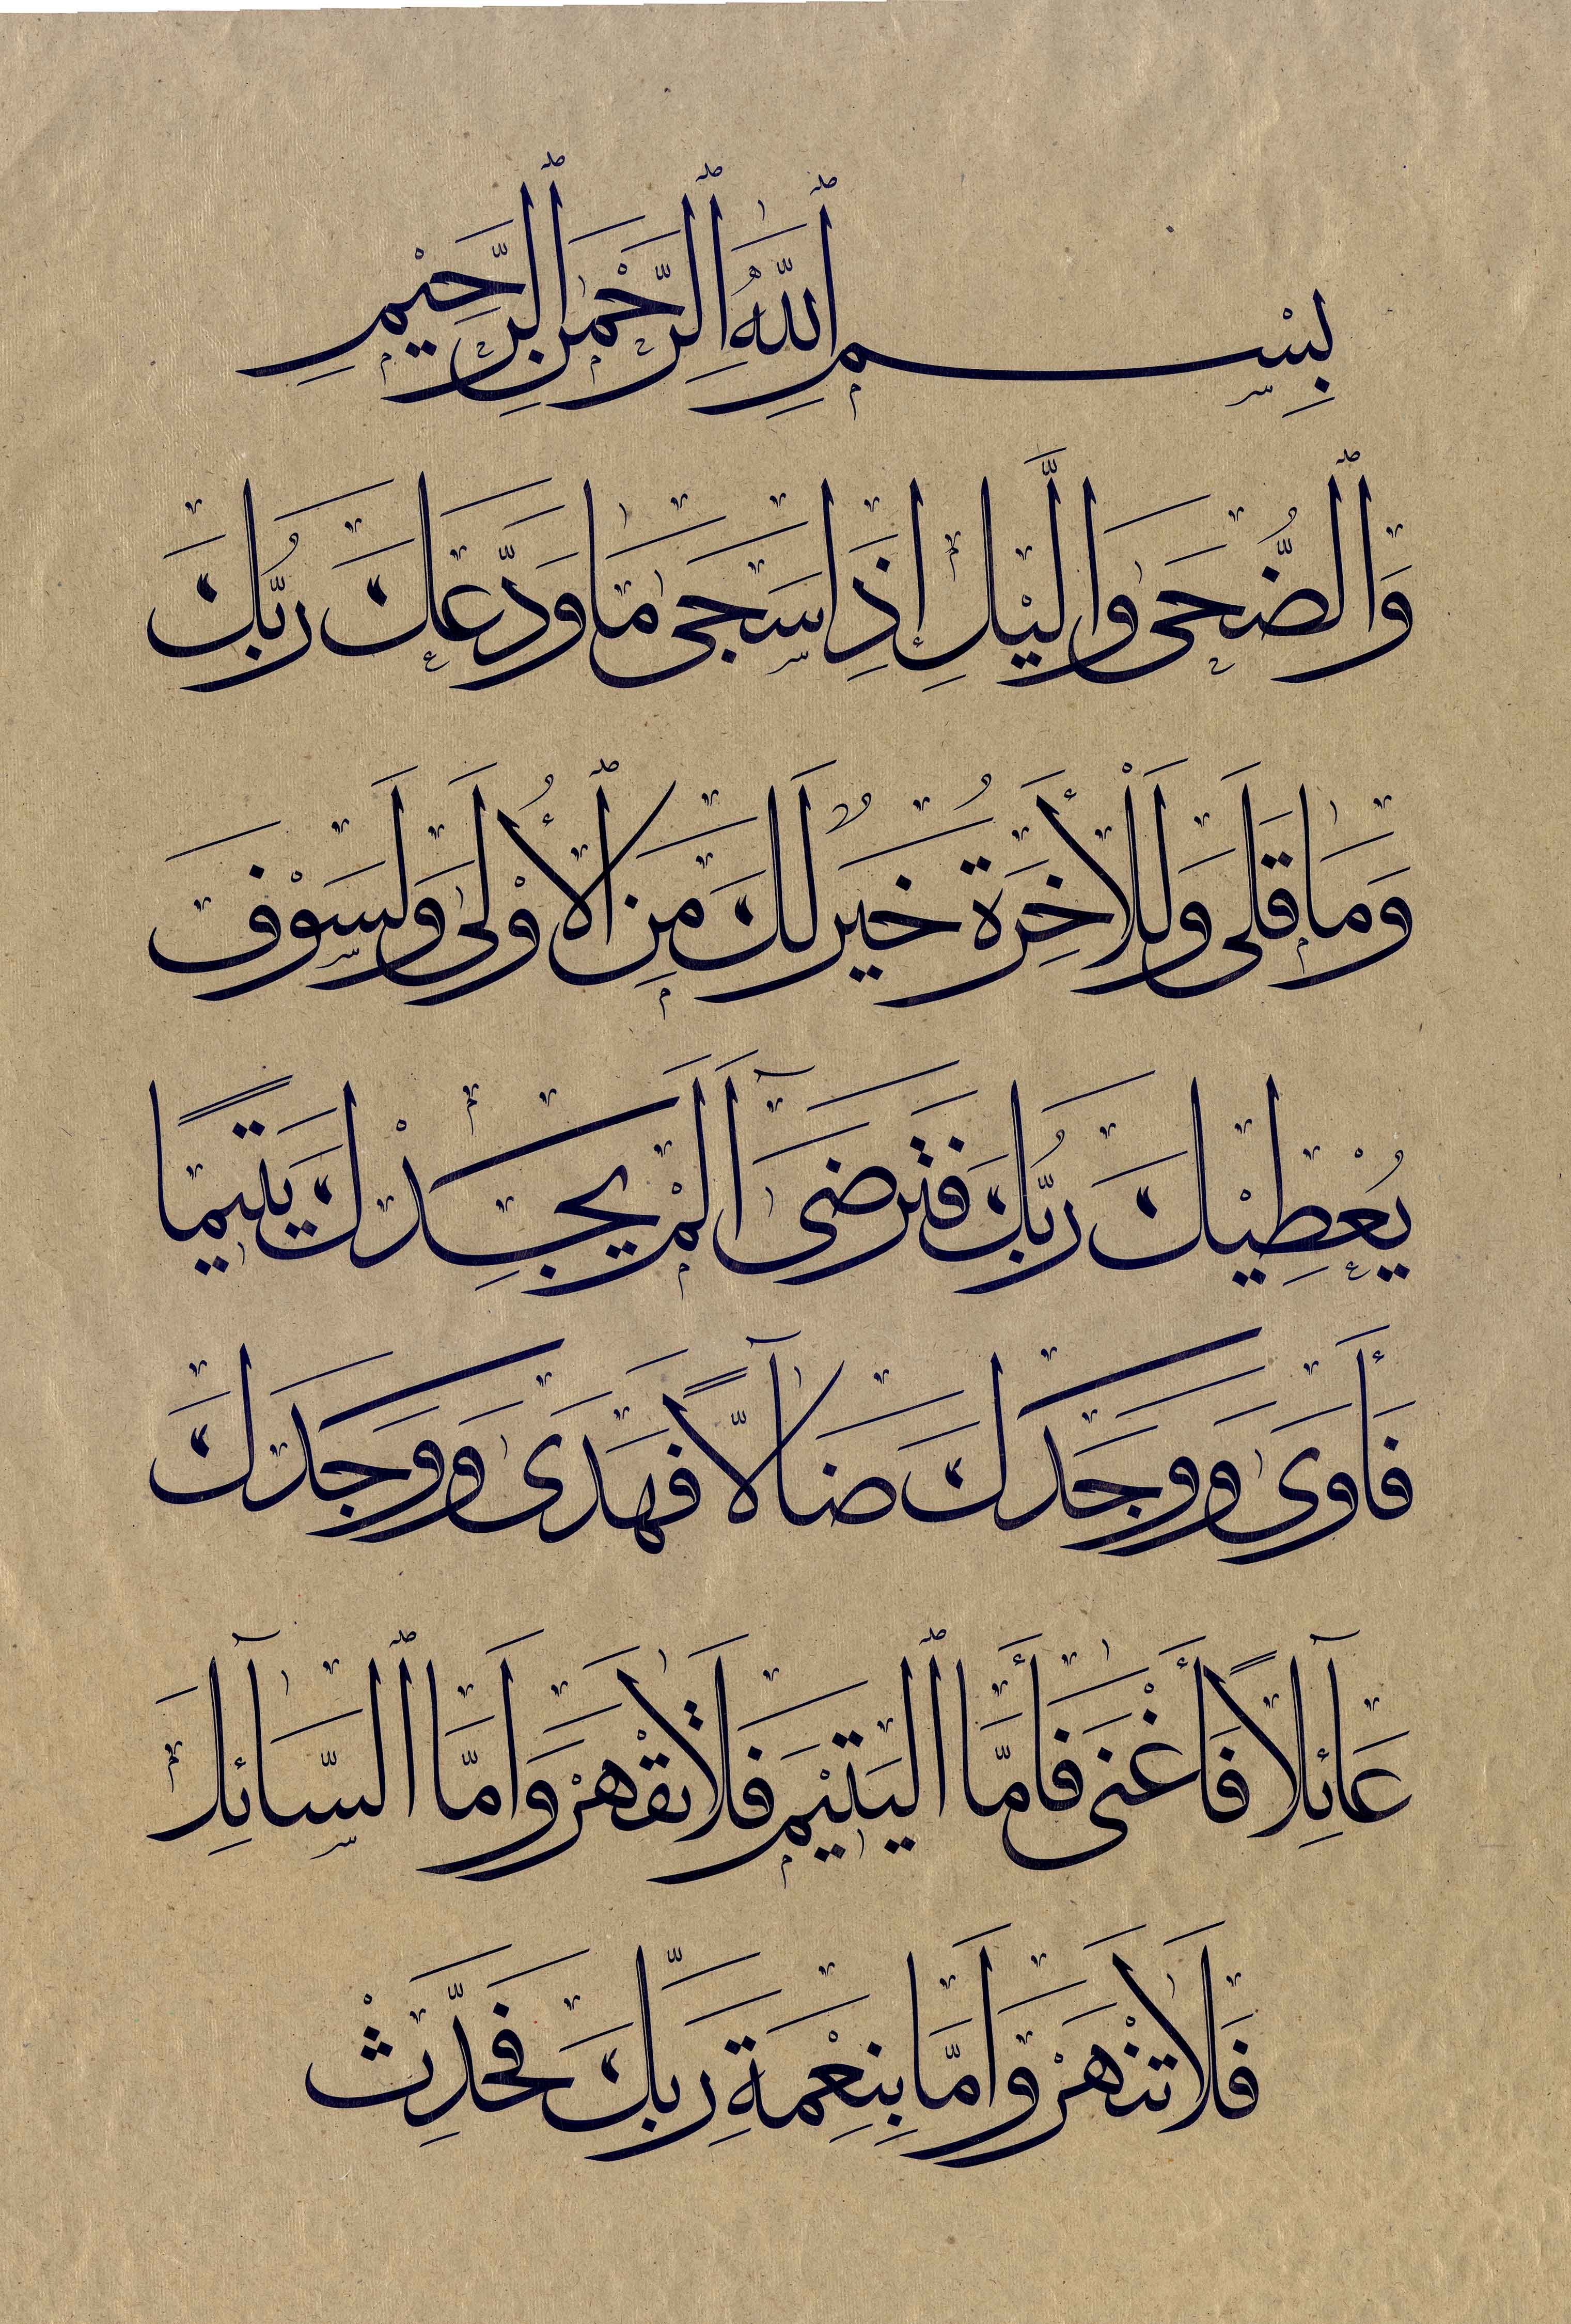 بِسْمِ ٱللَّهِ ٱلرَّحْمٰنِ ٱلرَّحِيْمِ
وَٱلضُّحَىٰ وَالَّيْلِ إِذَا سَجَىٰ مَا وَدَّعَكَ رَبُّكَ
وَمَا قَلَىٰ وَلَلْأَخِرَةُ خَيْرٌ لَكَ مِنَ ٱلأُوْلَىٰ وَلَسَوْفَ
يُعْطِيْكَ رَبُّكَ فَتَرضَىٰٓ أَلَمْ يَجِدْكَ يَتِيمًا
فَأَوَىٰ وَوَجَدَكَ ضَآلًّا فَهَدَىٰ وَوَجَدَكَ
عَآئِلًا فَأَغْنَىٰ فَأَمَّا ٱليَتِيْمَ فَلَا تَقْهَرْ وَأَمَّا ٱلسَّآئِلَ
فَلَا تَنْهَرْ وَأَمَّا بِنِعْمَةِ رَبِّكَ فَحَدِّثْ